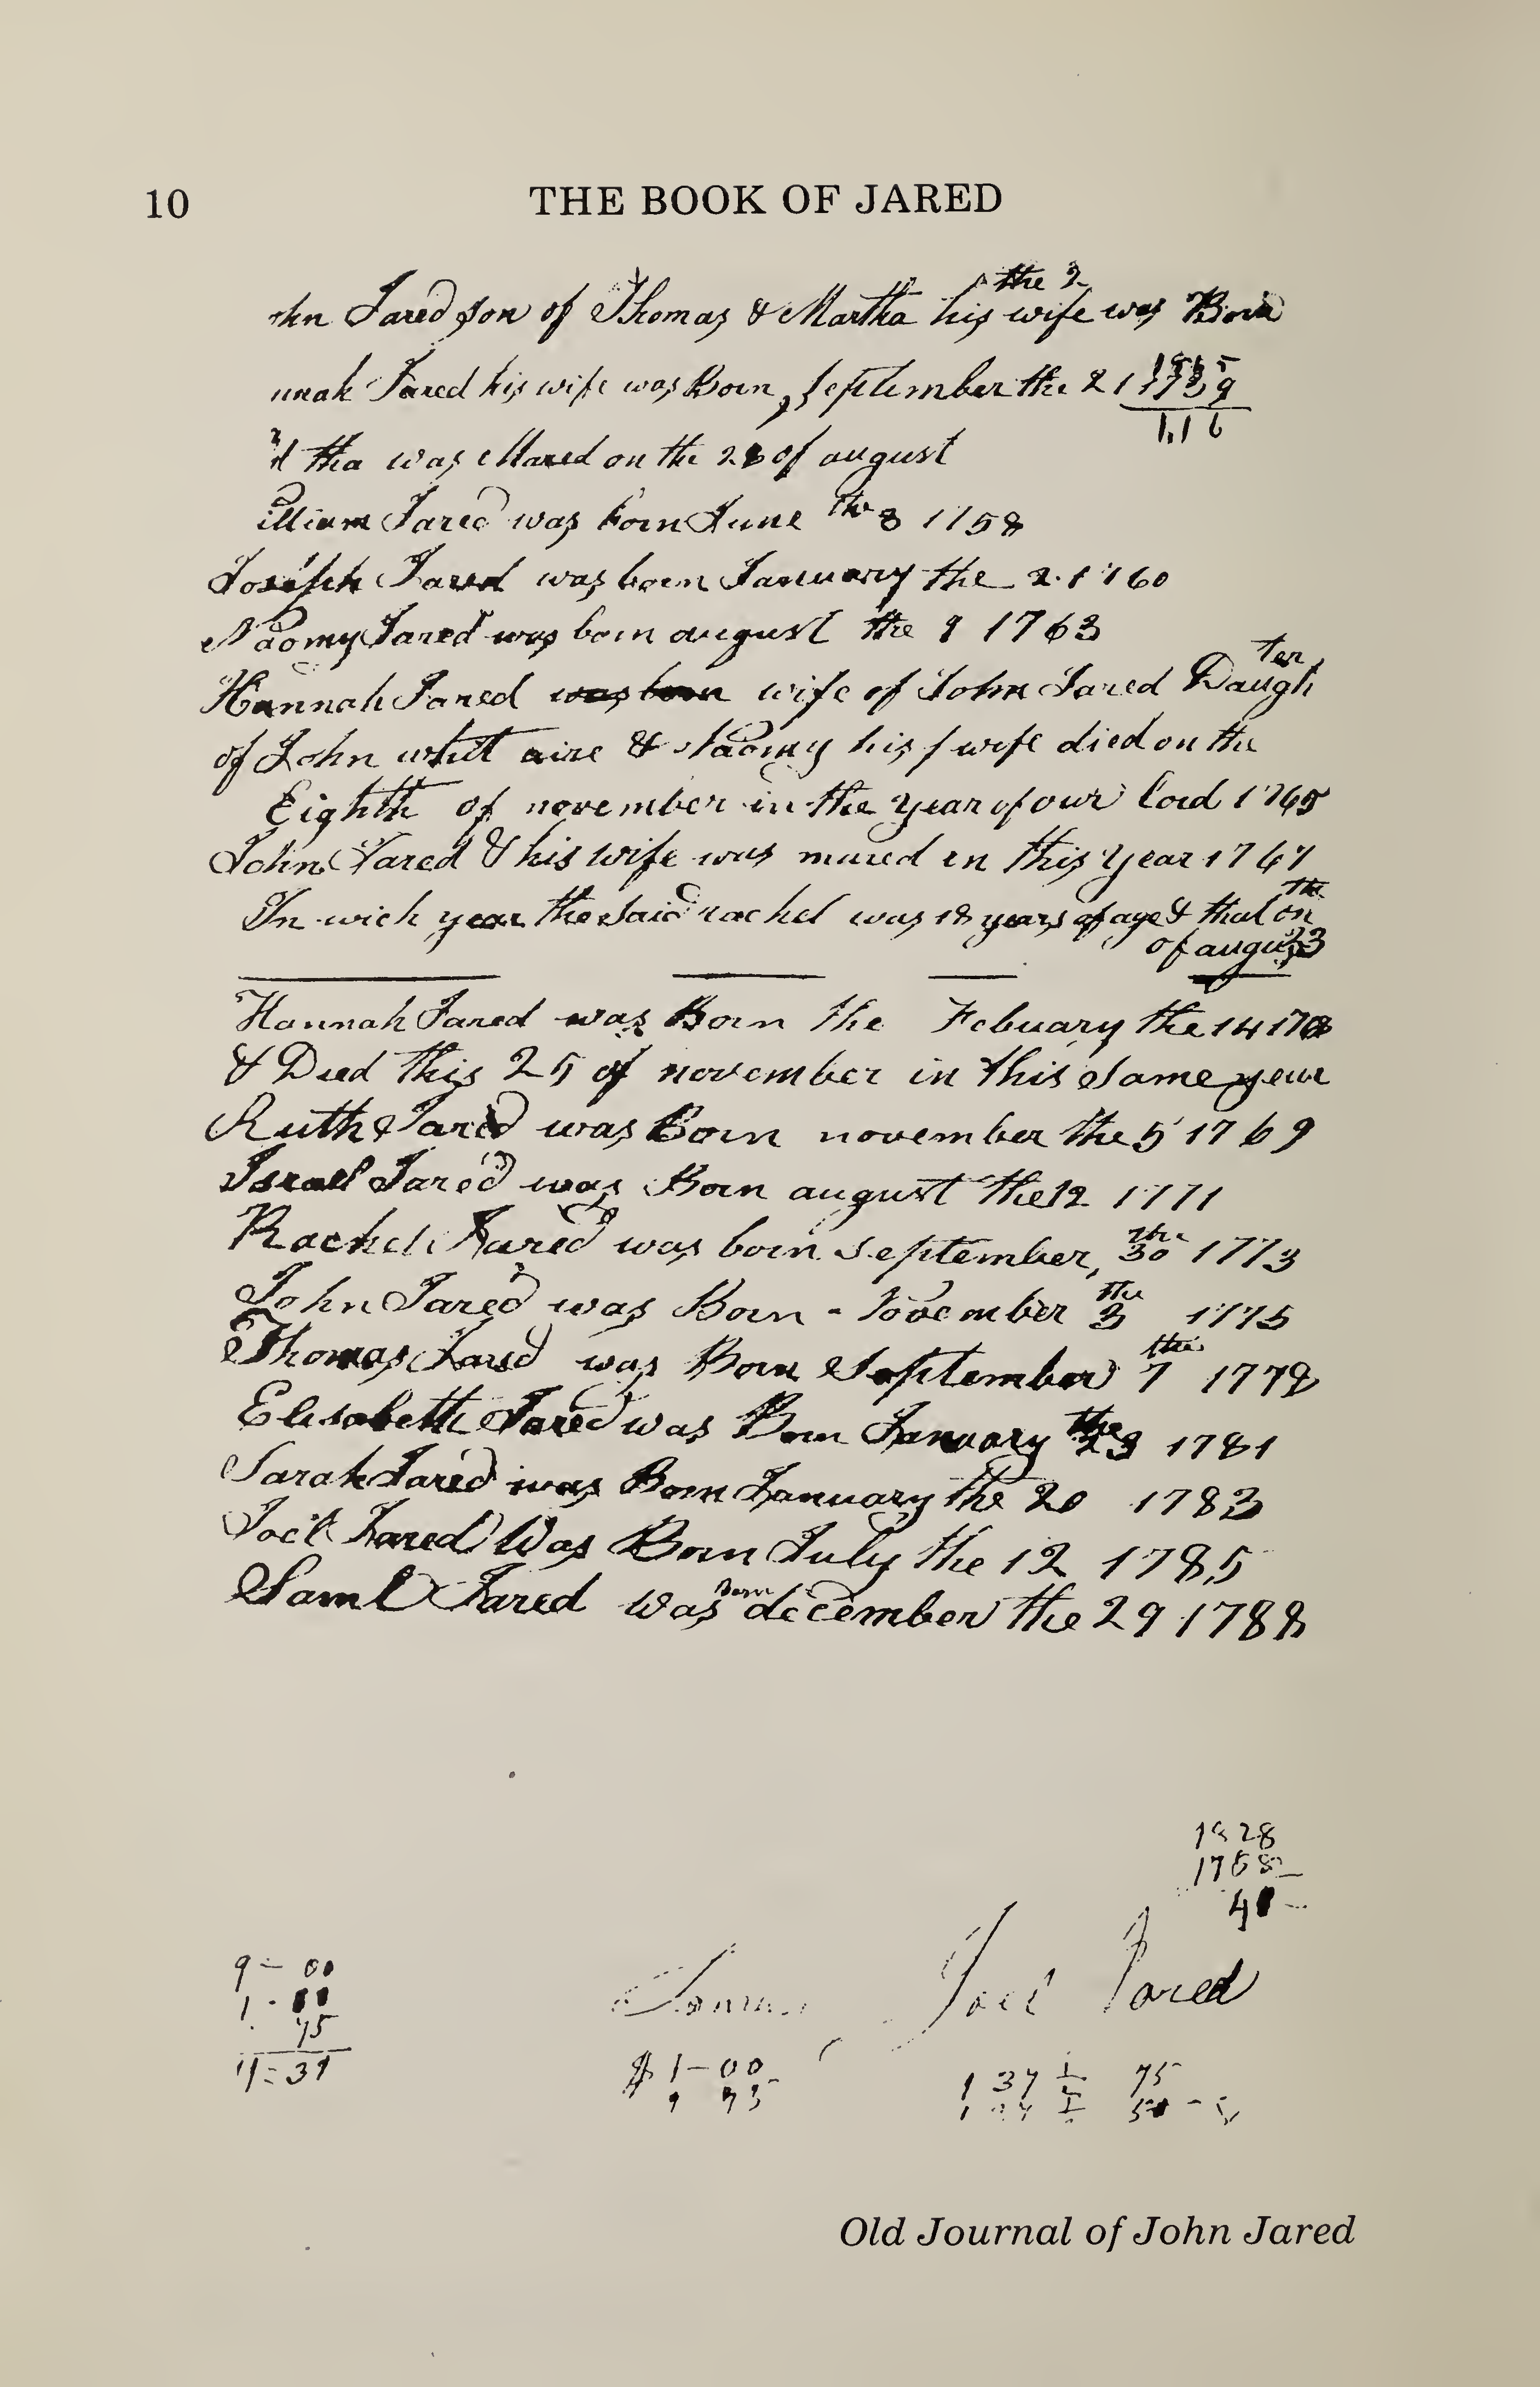 10 THE BOOK OF JARED
the 2
hn Jared son of Thomas & Martha his wife was Born
nnah Jared his wife was Born, september the 21 1739
1815
116
tha was Mared on the 28 of august
illiam Jared was born June the 8 1758
Joseph Jared was born January the 2 1760
Naomy Jared was born august the 9 1763
Hannah Jared was born wife of John Jared Daugh
ter
of John whit aire & Naomy his wife died on the
Eighth of november in the year of our lord 1765
John Jared & his wife was mared in this year 1767
In wich year the said rachel was 18 years of age & that on
the
of august 23
Hannah Jared was Born the Febuary the 14 1768
& Died this 25 of november in this same year
Ruth Jared was Born november the 5 1769
Israel Jared was Born august the 12 1771
Rachel Jared was born september, the 30 1773
John Jared was Born November the 3 1775
Thomas Jared was Born September the 7 1778
Elisabeth Jared was Born January the 23 1781
Sarah Jared was Born January the 20 1783
Joel Jared Was Born July the 12 1785
Saml Jared was born december the 29 1788
1828
1768
40
9 - 00
1 - 00
75
11 = 37
Joel Jared
$ 1 - 00
1 37 75
Old Journal of John Jared